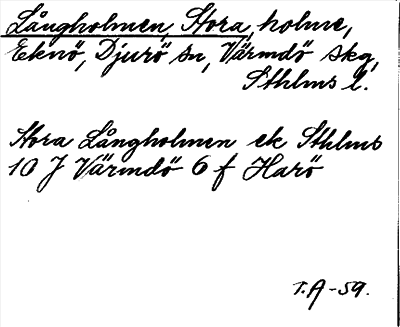 Långholmen, Stora, holme,
Eknö, Djurö sn, Värmdö skg,
Sthlms l.
Stora Långholmen ek Sthlms
10 J Värmdö 6 f Harö
T.A-59.